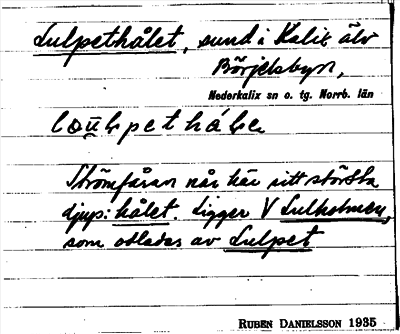 Lulpethålet, sund i Kalix älv
Börjelsbyn,
Nederkalix sn o. tg. Norrb. län
Strömfåran når här sitt största
djup: hålet. Ligger V Lulholmen,
som avledes av Lulpet
RUBEN DANIELSSON 1935